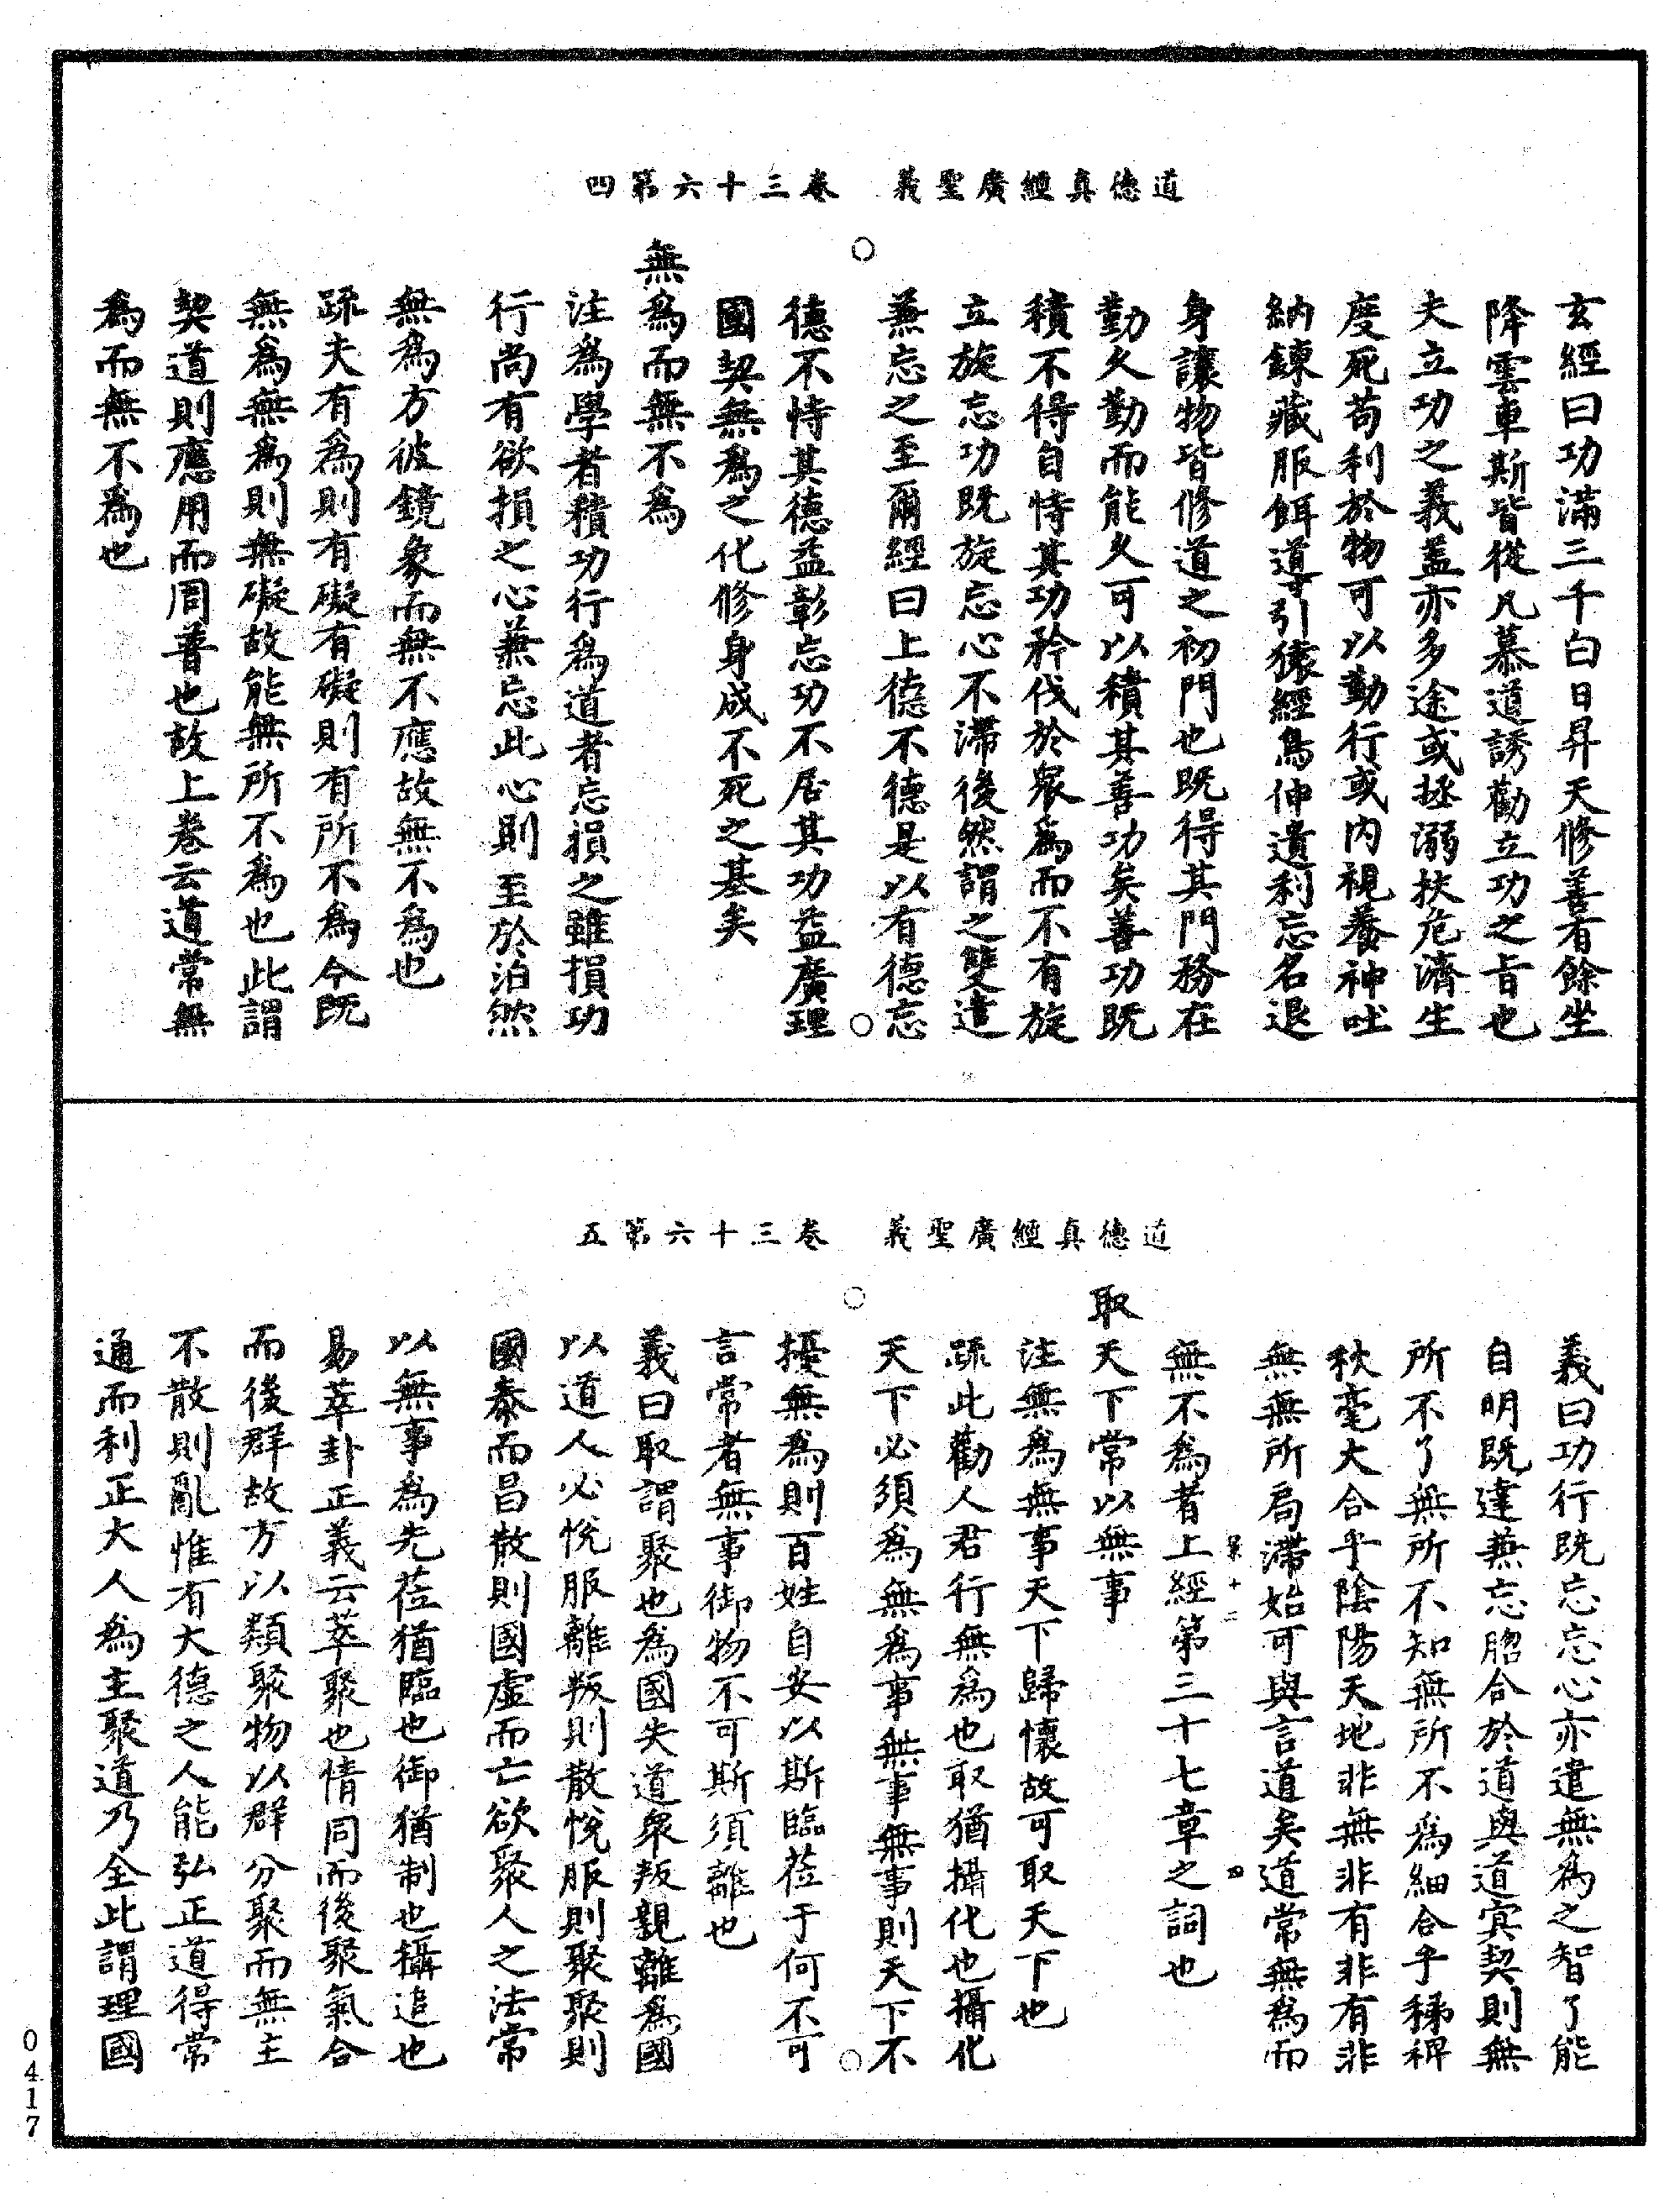 道德真經廣聖義　卷三十六第四
玄經曰功滿三千白日昇天修善有餘坐
降雲車斯皆從凡慕道誘勸立功之旨也
夫立功之義蓋亦多途或拯溺扶危濟生
度死苟利於物可以勤行或內視養神吐
納鍊藏服餌道引猿經鳥伸遺利忘名退
身讓物皆修道之初門也既得其門務在
勤久勤而能久可以積其善功矣善功既
積不得自恃其功矜伐於衆為而不有旋
立旋忘功既旋忘心不滯後然謂之雙遣
兼忘之至爾經曰上德不德是以有德忘
德不恃其德益彰忘功不居其功益廣理
國契無為之化修身成不死之基矣
無為而無不為
注為學者積功行為道者忘損之雖損功
行尚有欲損之心兼忘此心則至於泊然
無為方彼鏡象而無不應故無不為也
疏夫有為則有礙有礙則有所不為今既
無為無為則無礙故能無所不為也此謂
契道則應用而周普也故上卷云道常無
為而無不為也
道德真經廣聖義　卷三十六第五
義曰功行既忘忘心亦遣無為之智了能
自明既達兼忘脗合於道與道冥契則無
所不了無所不知無所不為細合乎稊稗
秋毫大合乎陰陽天地非無非有非有非
無無所局滯始可與言道矣道常無為而
無不為者上經第三十七章之詞也
取天下常以無事
注無為無事天下歸懷故可取天下也
疏此勸人君行無為也取猶攝化也攝化
天下必須為無為事無事無事則天下不
擾無為則百姓自安以斯臨莅于何不可
言常者無事御物不可斯須離也
義曰取謂聚也為國失道衆叛親離為國
以道人必悅服離叛則散悅服則聚聚則
國泰而昌散則國虛而亡欲聚人之法常
以無事為先莅猶臨也御猶制也攝追也
易萃卦正義云萃聚也情同而後聚氣合
而後群故方以類聚物以群分聚而無主
不散則亂惟有大德之人能弘正道得常
通而利正大人為主聚道乃全此謂理國
0417